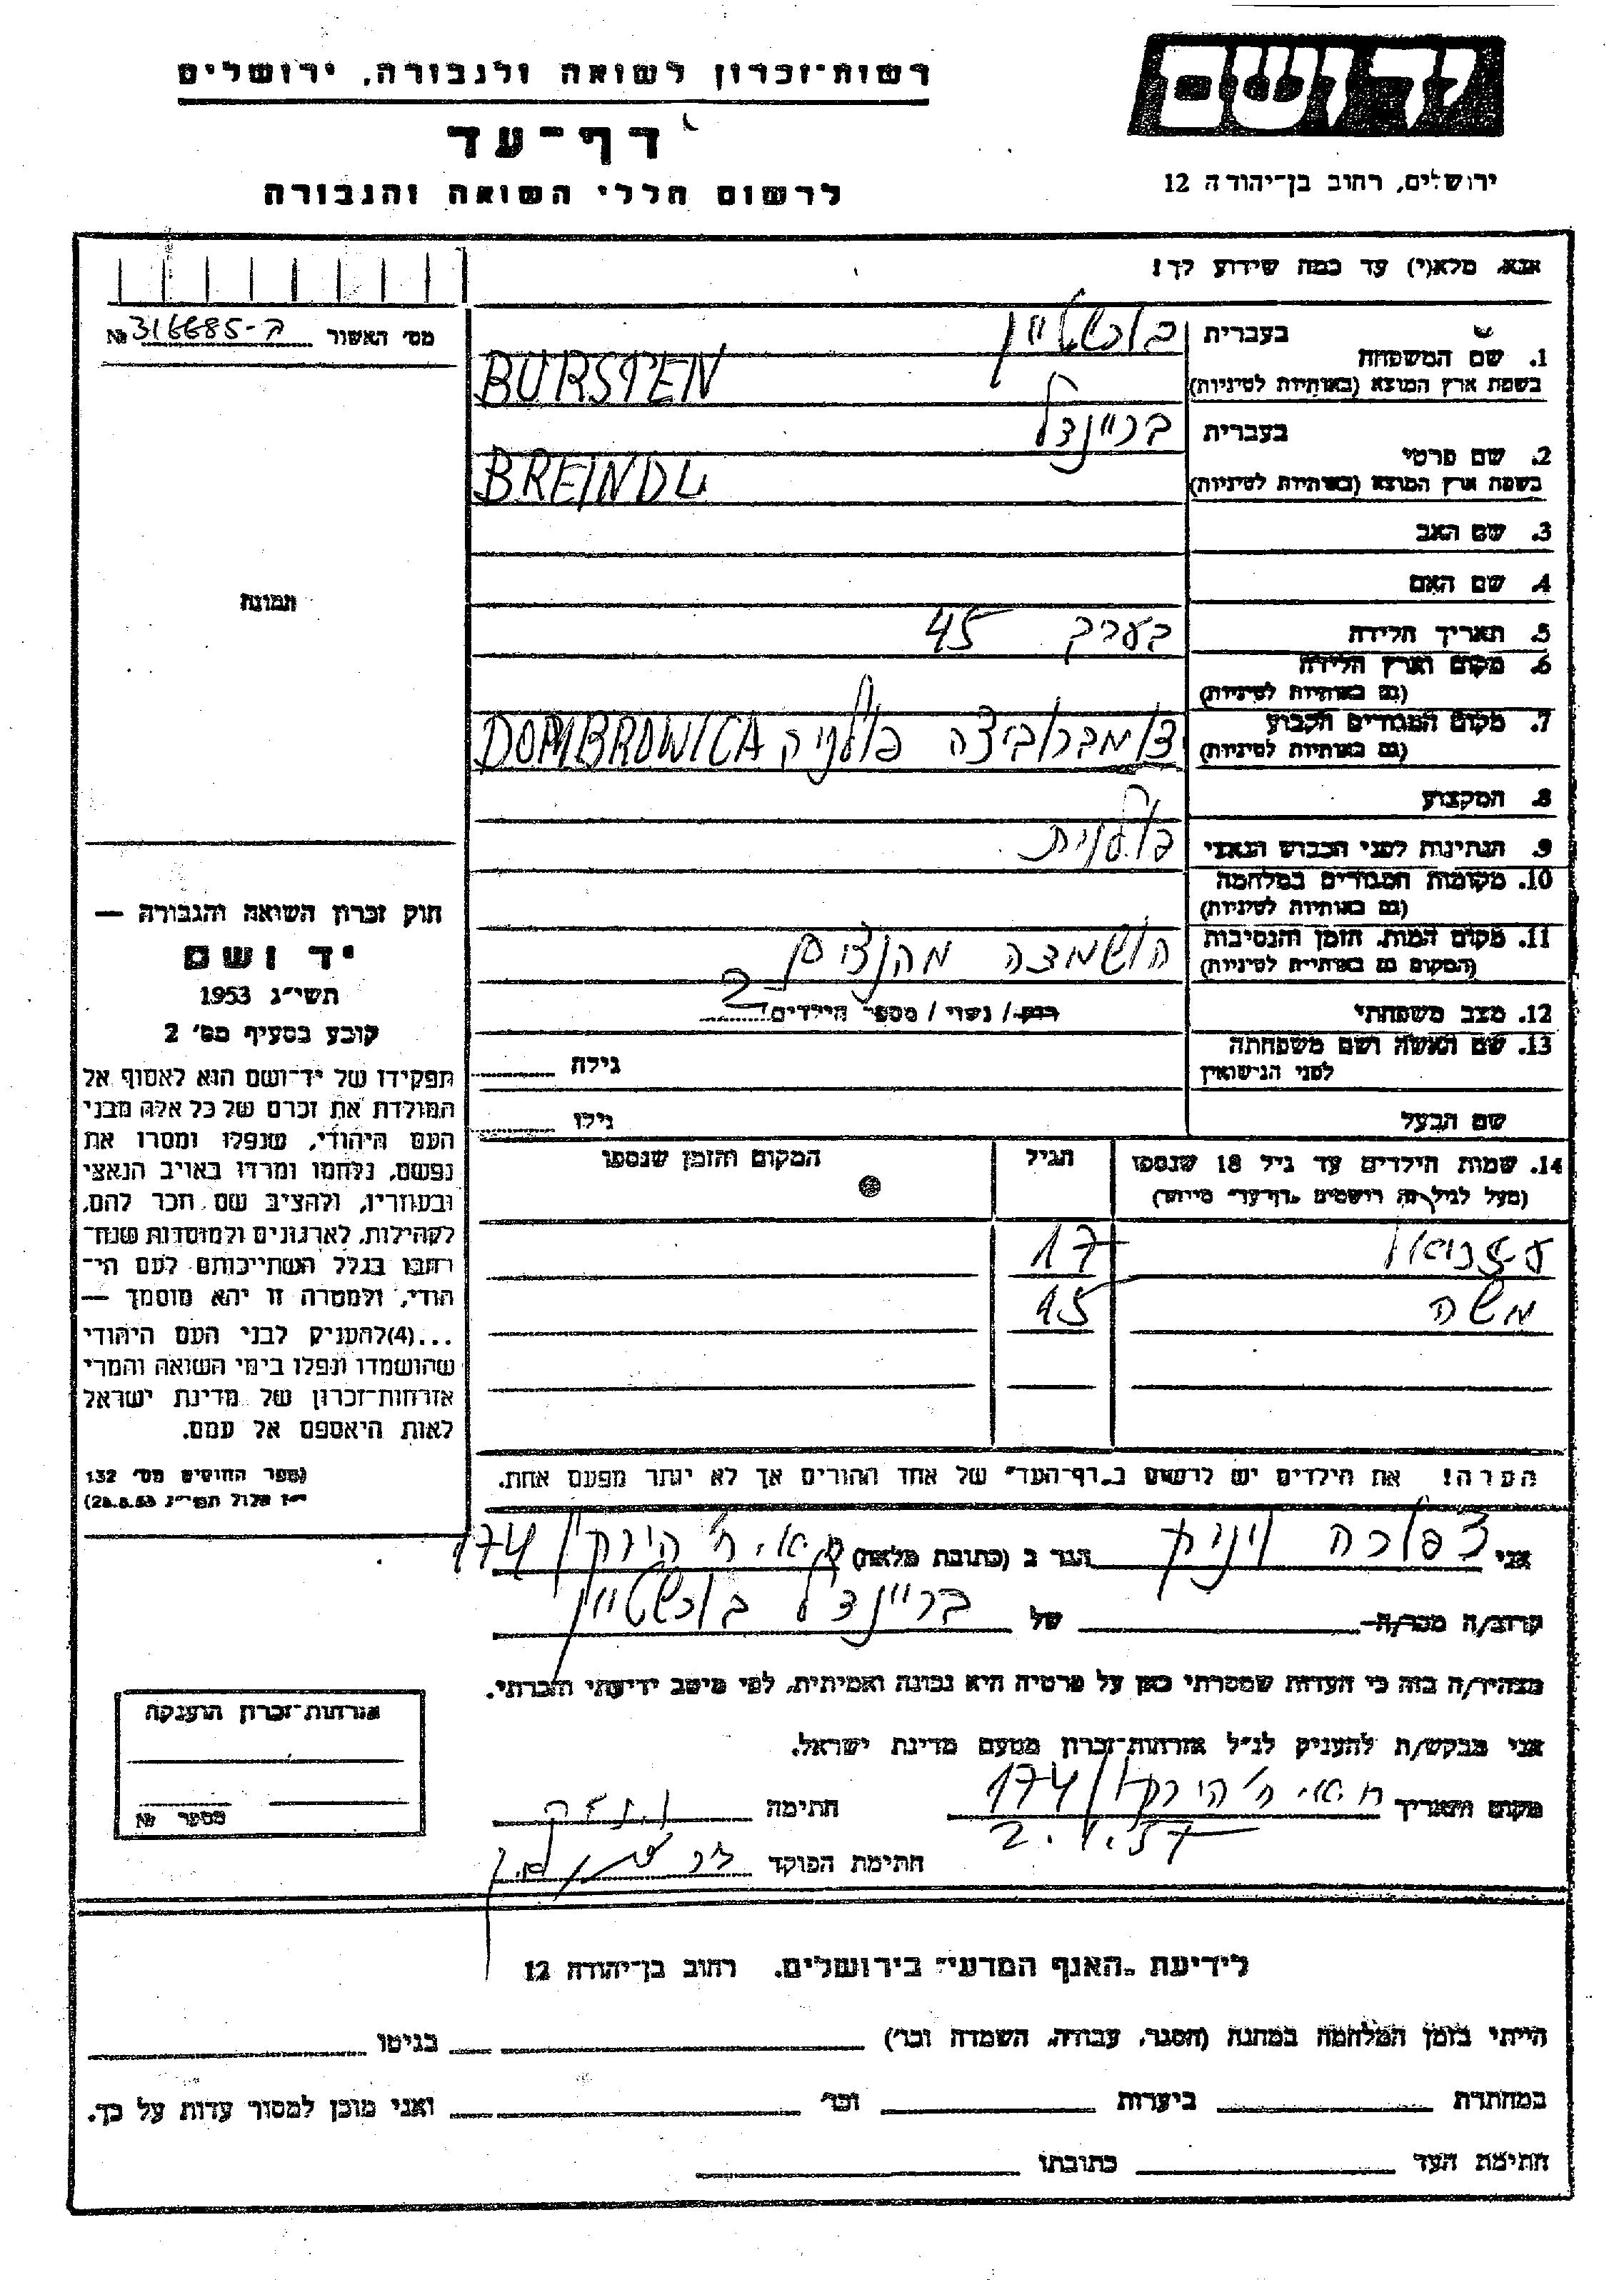 יד ושם
רשות־זכרון לשואה ולגבורה, ירושלים
דף־עד
לרשום חללי השואה והגבורה
ירושלים, רחוב בן־יהודה 12
אנא, מלא(י) עד כמה שידוע לך!
מס׳ האשור 316685-ב №
1. שם המשפחה בעברית בורשטיין
בשפת ארץ המוצא (באותיות לטיניות) BURSTEN
2. שם פרטי בעברית בריינדל
בשפת ארץ המוצא (באותיות לטיניות) BREINDL
3. שם האב
4. שם האם
תמונה
5. תאריך הלידה בערך 45
6. מקום וארץ הלידה
(גם באותיות לטיניות)
7. מקום המגורים הקבוע דומברוביצה פולניה DOMBROWICA
(גם באותיות לטיניות)
8. המקצוע
9. הנתינות לפני הכבוש הנאצי פולנית
10. מקומות המגורים במלחמה
(גם באותיות לטיניות)
11. מקום המות, הזמן והנסיבות הושמדה מהנצים
(המקום גם באותיות לטיניות)
12. מצב משפחתי רוק / נשוי / מספר הילדים 2
13. שם האשה ושם משפחתה
לפני הנישואין גילה
שם הבעל גילו
14. שמות הילדים עד גיל 18 שנספו הגיל המקום והזמן שנספו
(מעל לגיל זה רושמים „דף־עד״ מיוחד)
17
משה 15
הערה! את הילדים יש לרשום ב„דף־העד״ של אחד ההורים אך לא יותר מפעם אחת.
חוק זכרון השואה והגבורה —
יד ושם
תשי״ג 1953
קובע בסעיף מס׳ 2
תפקידו של יד־ושם הוא לאסוף אל
המולדת את זכרם של כל אלה מבני
העם היהודי, שנפלו ומסרו את
נפשם, נלחמו ומרדו באויב הנאצי
ובעוזריו, ולהציב שם וזכר להם,
לקהילות, לארגונים ולמוסדות שנח־
רבו בגלל השתייכותם לעם הי־
הודי, ולמטרה זו יהא מוסמך —
...(4)להעניק לבני העם היהודי
שהושמדו ונפלו בימי השואה והמרי
אזרחות־זכרון של מדינת ישראל
לאות היאספם אל עמם.
(ספר החוקים מס׳ 132
י״ז אלול תשי״ג 28.8.53)
אני צפורה הגר ב (כתובת מלאה) 174
קרוב/ה מכר/ה של בריינדל בורשטיין
מצהיר/ה בזה כי העדות שמסרתי כאן על פרטיה היא נכונה ואמיתית, לפי מיטב ידיעתי והכרתי.
אני מבקש/ת להעניק לנ״ל אזרחות־זכרון מטעם מדינת ישראל.
מקום ותאריך 174 חתימה
2.1.57
חתימת הפוקד
אזרחות־זכרון הוענקה
מספר №
לידיעת „האגף המדעי״ בירושלים. רחוב בן־יהודה 12
הייתי בזמן המלחמה במחנה (הסגר, עבודה, השמדה וכו׳) בגיטו
במחתרת ביערות וכו׳ ואני מוכן למסור עדות על כך.
חתימת העד כתובתו